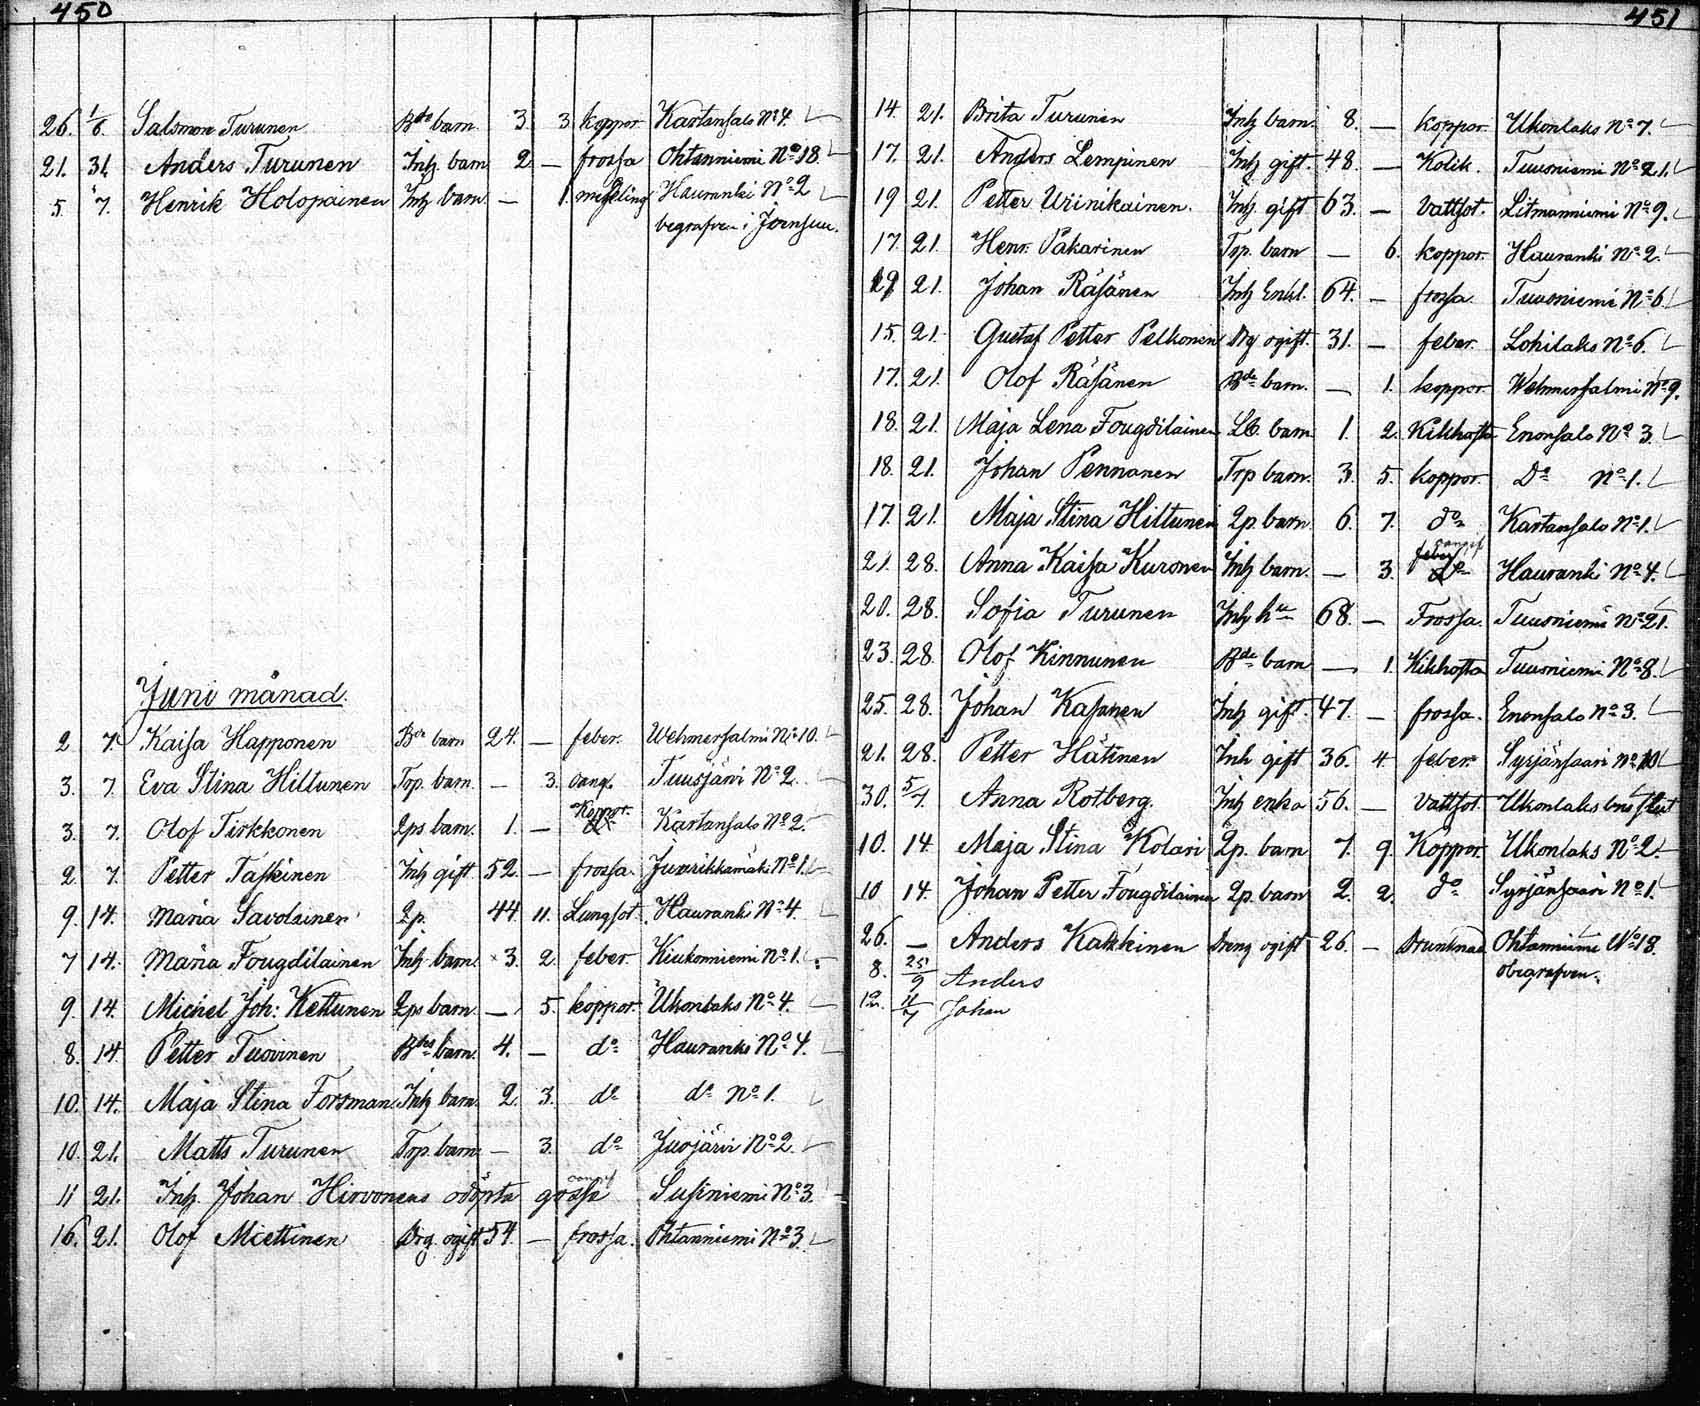 450
26. 1/6. Salomon Turunen Bde barn. 3. 3. koppor. Kartansalo No 4.
21. 31. Anders Turunen Inh. barn 2 — frossa Ohtanniemi No 18.
5. 7. Henrik Holopainen Inh barn — 1. messling Hauranki No 2
begrafven i Joensuu.
Juni månad.
2 7. Kaisa Happonen Bdr barn 24. — feber. Wehmersalmi No 10.
3. 7. Eva Stina Hiltunen Torp. barn. — 3. oang. Tuusjärvi No 2.
3. 7. Olof Tirkkonen Lps barn. 1. — Koppor. Kartansalo No 2.
2. 7. Petter Taskinen Inh gift 52. — frossa. Juurikkamäki No 1.
9. 14. Maria Savolainen Lp. 44. 11. Lungsot. Hauranki No 4.
7 14. Maria Fougdilainen Inh barn. 3. 2. feber. Kiukonniemi No 1.
9. 14. Michel Joh: Kettunen Lps barn. — 5. koppor. Ukonlaks No 4.
8. 14. Petter Tuovinen Bdes barn. 4. — do Hauranki No 4.
10. 14. Maja Stina Forsman Inh barn. 2. 3. do do No 1.
10. 21. Matts Turunen Torp. barn. — 3. do Juojärvi No 2.
11 21. Inh. Johan Hirvonens odöpta gosse oangif Susiniemi No 3.
16. 21. Olof Miettinen Drg ogift 54. — frossa. Ohtanniemi No 3.
451
14. 21. Brita Turunen Inh barn. 8. — koppor. Ukonlaks No 7.
17. 21. Anders Lempinen Inh gift. 48. — Kolik. Tuusniemi No 21.
19 21. Petter Wiinikainen. Inh. gift 63. — Vattsot. Litmanniemi No 9.
17. 21. Henr. Pakarinen Torp. barn — 6. koppor. Hauranki No 2.
19 21. Johan Räsänen Inh Enkl. 64. — frossa Tuusniemi No 6.
15. 21. Gustaf Petter Pelkonen Drg ogift. 31. — feber. Lohilaks No 6.
17. 21. Olof Räsänen Bde barn. — 1. koppor Wehmersalmi No 9.
18. 21. Maja Lena Fougdilainen Lb. barn 1. 2. Kikhosta Enonsalo No 3.
18. 21. Johan Pennanen Torp barn. 3. 5. koppor. Do No 1.
17. 21. Maja Stina Hiltunen Lp. barn 6. 7. do Kartansalo No 1.
21. 28. Anna Kaisa Kuronen Inh barn. — 3. feber oangif do Hauranki No 4.
20. 28. Sofia Turunen Inh hu 68. — Frossa. Tuusniemi No 21.
23. 28. Olof Kinnunen Bde barn — 1. Kikhosta Tuusniemi No 8.
25. 28. Johan Kasanen Inh gift. 47. — frossa. Enonsalo No 3.
21. 28. Petter Hätinen Inh gift 36. 4 feber. Syrjänsaari No 10
30. 5/7. Anna Rotberg. Inh enka 56. — Vattsot. Ukonlaks
10. 14. Maja Stina Kolari Lp. barn 7. 9. Koppor. Ukonlaks No 2.
10 14. Johan Petter Fougdilainen Lp. barn 2. 2. do Syrjänsaari No 1.
26. — Anders Kakkinen Dreng ogift 26. — Drunknad Ohtanniemi No 18.
obegrafven.
8. 25/9 Anders
12. 4/7 Johan